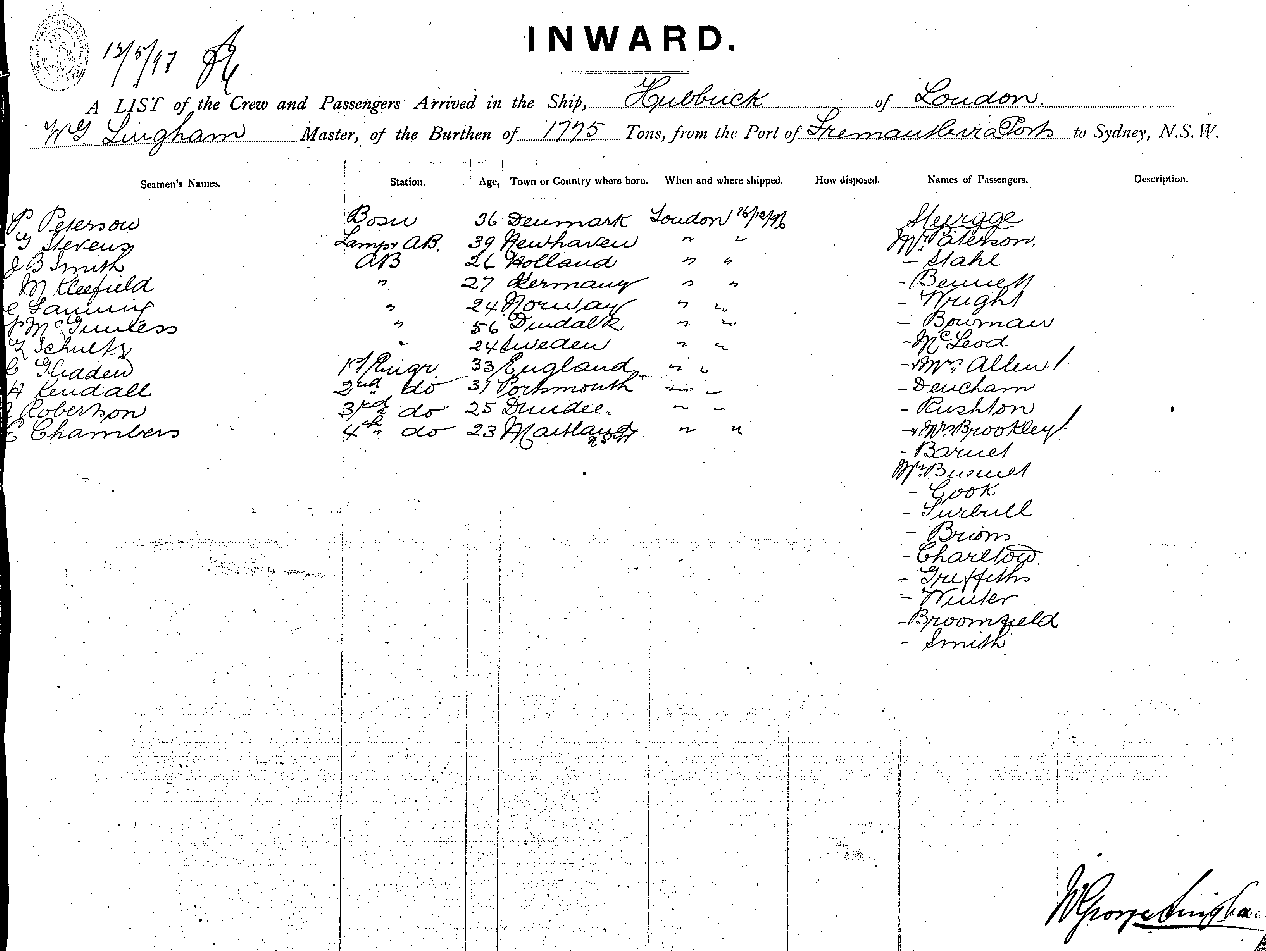 13/5/97
INWARD.
A LIST of the Crew and Passengers Arrived in the Ship, Hubbuck of London.
W G Lingham Master, of the Burthen of 1775 Tons, from the Port of Fremantle via Ports to Sydney, N.S.W.
Seamen's Names. Station. Age, Town or Country where born. When and where shipped. How disposed. Names of Passengers. Description.
P Peterson Bosn 36 Denmark London 16/12/96 Steerage
G Stevens Lamps AB. 39 Newhaven " " Mr Paterson.
J B Smith AB 26 Holland " " - Stahl
M Cleefield " 27 Germany " " - Bennett
Lanning " 24 Norway " " - Wright
McGuiness " 56 Dundalk " " - Bowman
Schultz " 24 Sweden " " - McLeod
Glidden 1st Engr 33 England " " - Mrs Allen /
Kendall 2nd do 31 Portsmouth " " - Dencham
Robertson 3rd do 25 Dundee. " " - Rushton
E Chambers 4th do 23 Maitland NSW " " - Mrs Brookley /
- Barnet
Mr Burnet
- Cook
- Turbull
- Brions
- Charlton
- Griffiths
- Winter
- Broomfield
- Smith
W George Lingham